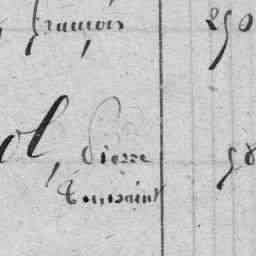 françois 250
ol, Pierre 58
Toussaint